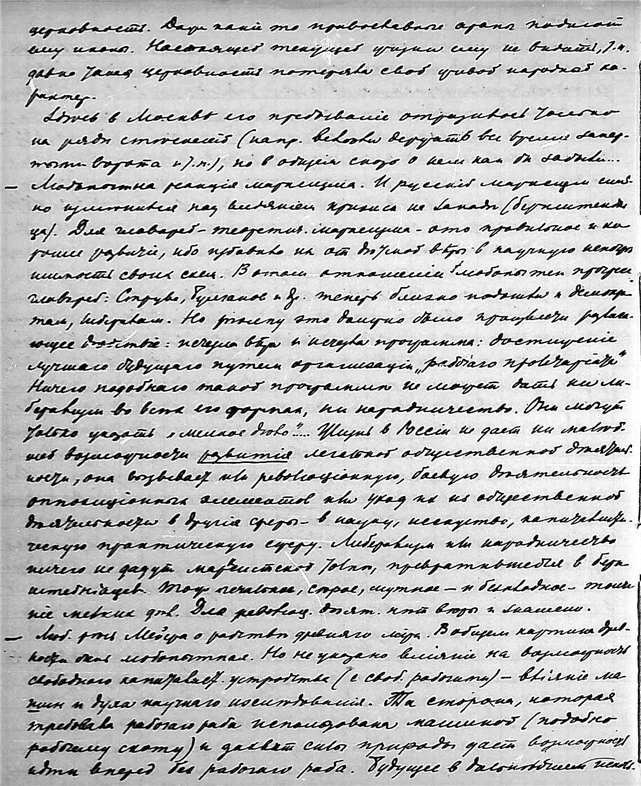 церковность. Даже какие то
ему иконы. Настоящей текущей жизни ему не видать, т.к.
давно такая церковность потеряла свой живой народный ха-
рактер.
Здесь в Москве его пребывание отразилось только
на ряде стеснений (напр. держать все время запер-
тыми ворота и т.п.), но в общем скоро о нем как бы забыли...
– Любопытна реакция марксизма. И русский марксизм силь-
но изменился под влиянием кризиса на Западе (бернштениан-
ца). Для главарей-теоретич. марксизма - это правильное и хо-
рошее развитие, ибо от ложной веры в научную непогре-
шимость своих схем. В этом отношении любопытен прогресс
главарей: Струве, Булгаков и др. теперь близко подошли к демокра-
там, либералам. Но это должно было произвести разлаг-
ющее действие: исчезла вера и исчезла программа: достижение
лучшего будущего путем организации "рабочего пролетариата"
Ничего подобного такой программе не может дать ни ли-
берализм во всех его формах, ни народничество. Они могут
только указать "мелкое дело".... Жизнь в России не дает ни малей-
шей возможности развития легальной общественной деятель-
ности, она вызывает или революционную, боевую деятельность
оппозиционных элементов или уход их из общественной
деятельности в другие сферы - в науку, искусство, капиталисти-
ческую практическую сферу. Либерализм или народничество
ничего не дадут марксистской толпе, превратившейся в берн-
штейнианцев. печальное, серое, мутное - и безвыходное -
ние мелких дел. Для революц. деят. нет веры и знамени.
– Люб. Мейера о рабстве древнего мира. В общем картина древ-
ности очень любопытная. Но не указано влияние на возможность
свободного капиталист. устройства (с своб. рабочими) - влияние ма-
шин и духа научного исследования. Та сторона, которая
требовала рабочего раба использована машиной (подобно
рабочему скоту) и захват силы природы дает возможность
идти вперед без рабочего раба. Будущее в дальнейшем